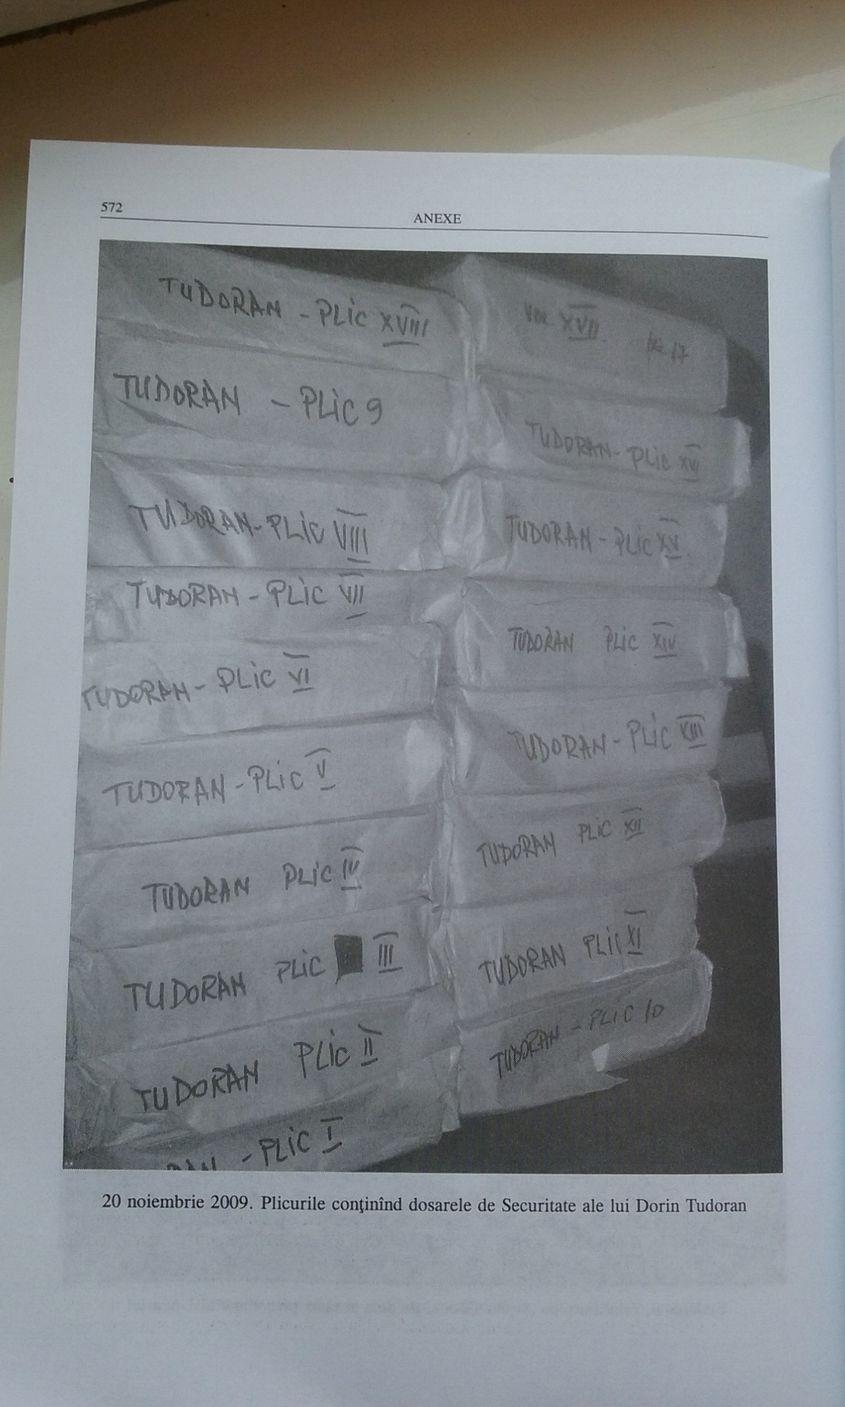 572
ANEXE
TUDORAN - PLIC XVIII
TUDORAN - PLIC 9
TUDORAN - PLIC VIII
TUDORAN - PLIC VII
TUDORAN - PLIC VI
TUDORAN - PLIC V
TUDORAN PLIC IV
TUDORAN PLIC III
TUDORAN PLIC II
- PLIC I
XVII
17
TUDORAN - PLIC XVI
TUDORAN - PLIC XV
TUDORAN PLIC XIV
TUDORAN - PLIC XIII
TUDORAN PLIC XII
TUDORAN PLIC XI
TUDORAN - PLIC 10
20 noiembrie 2009. Plicurile conţinînd dosarele de Securitate ale lui Dorin Tudoran